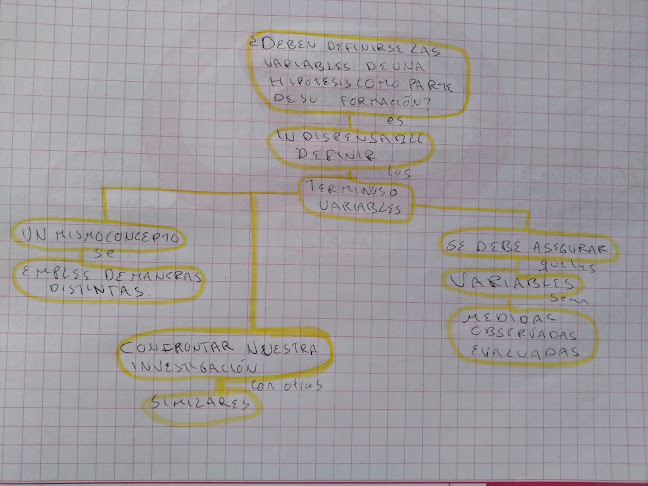 ¿DEBEN DEFINIRSE LAS
VARIABLES DE UNA
HIPOTESIS COMO PARTE
DE SU FORMACIÓN?
es
INDISPENSABLE
DEFINIR
los
TERMINOS O
VARIABLES
UN MISMO CONCEPTO
se
EMPLES DE MANERAS
DISTINTAS.
CONFRONTAR NUESTRA
INVESTIGACIÓN
con otras
SIMILARES
SE DEBE ASEGURAR
que las
VARIABLES
sean
MEDIDAS
OBSERVADAS
EVALUADAS